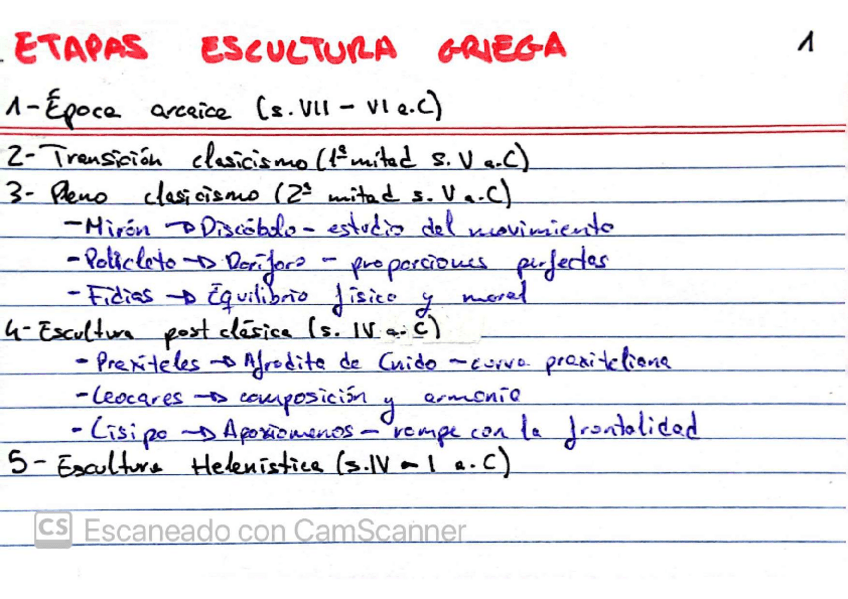 ETAPAS ESCULTURA GRIEGA 1
1- Época arcaica (s. VII - VI a.C)
2- Transición clasicismo (1ª mitad s. V a.C)
3- Pleno clasicismo (2ª mitad s. V a.C)
- Mirón → Discóbolo - estudio del movimiento
- Policleto → Doríforo - proporciones perfectas
- Fidias → Equilibrio físico y moral
4- Escultura postclásica (s. IV a. C)
- Praxiteles → Afrodita de Cnido - curva praxiteliana
- Leocares → composición y armonía
- Lisipo → Apoxiomenos - rompe con la frontalidad
5- Escultura Helenística (s. IV - I a. C)
CS Escaneado con CamScanner